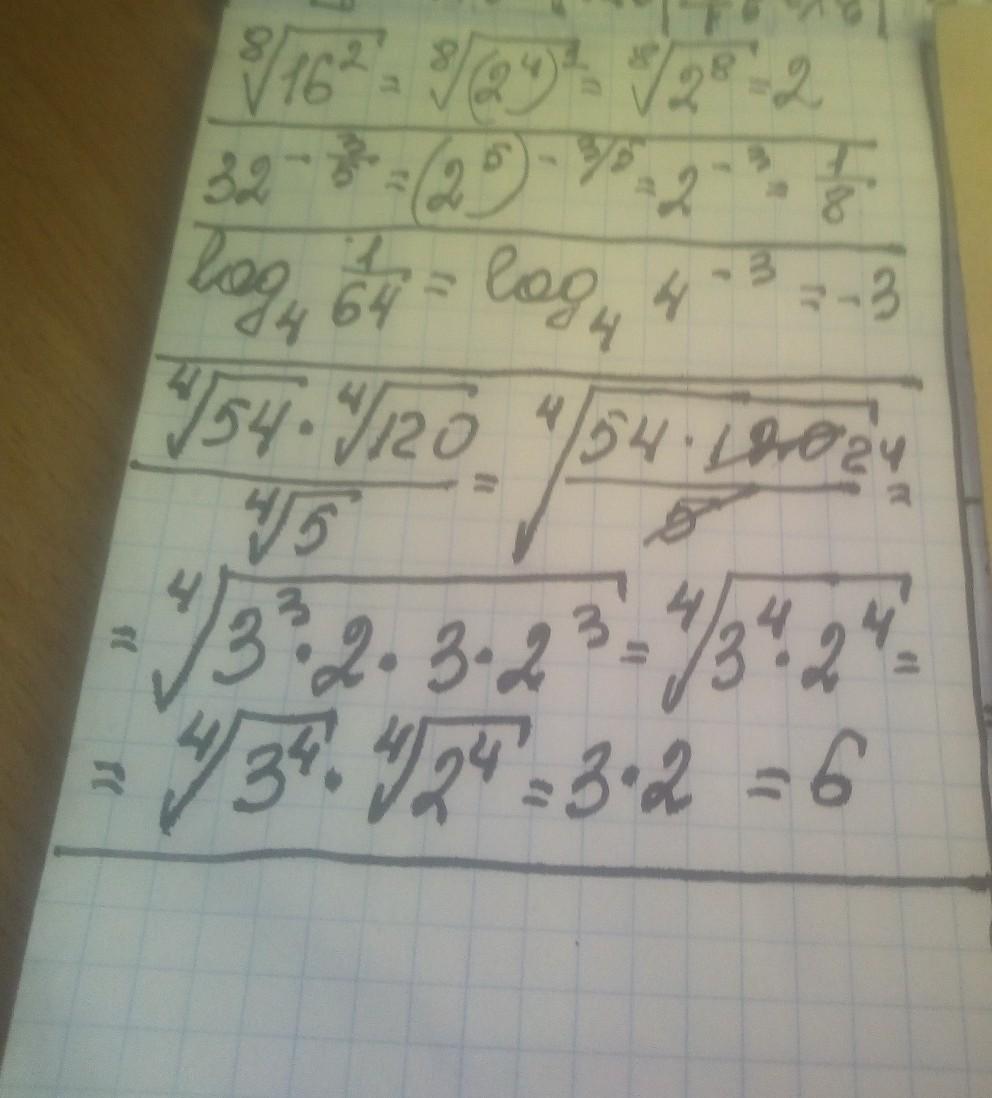 ⁸√16² = ⁸√(2⁴)² = ⁸√2⁸ = 2
32^(-3/5) = (2⁵)^(-3/5) = 2⁻³ = 1/8
log₄ 1/64 = log₄ 4⁻³ = -3
(⁴√54 · ⁴√120)/⁴√5 = ⁴√((54 · 120 24)/5) =
= ⁴√(3³ · 2 · 3 · 2³) = ⁴√(3⁴ · 2⁴) =
= ⁴√3⁴ · ⁴√2⁴ = 3 · 2 = 6